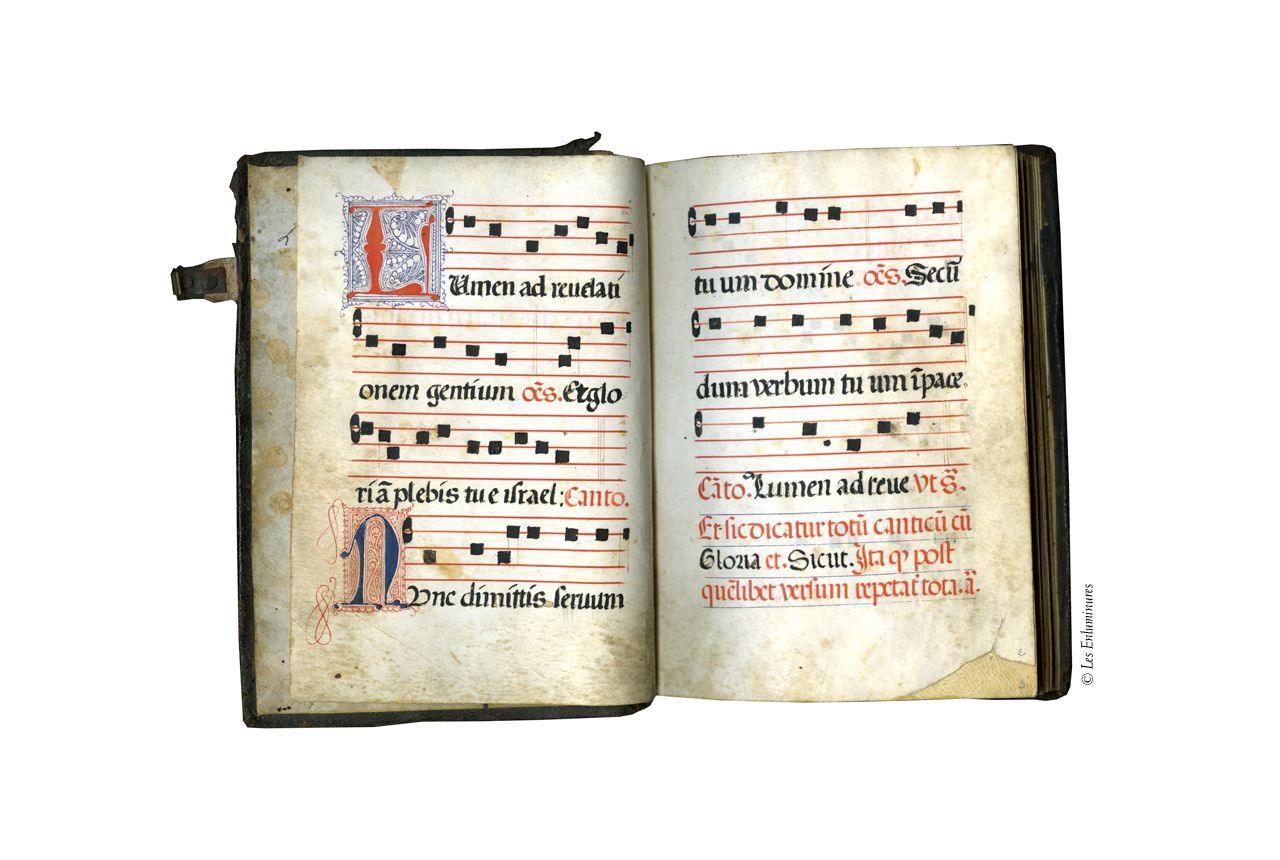 LUmen ad reuelati
onem gentium oēs. Et glo
riā plebis tu e israel: Canto.
NUnc dimittis seruum
tu um domine oēs. Secū
dum verbum tu um ī pace.
Cāto. Lumen ad reue vt s̄.
Et sic dicatur totū canticū cū
Gloria et. Sicut. Ita qꝫ post
quēlibet versum repetat᷑ tota. ā.
© Les Enluminures